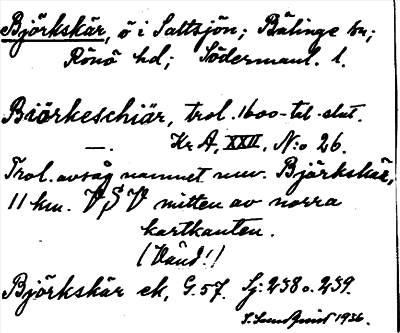 Björkskär, ö i Saltsjön; Bälinge sn;
Rönö hd; Södermanl. l.
Biörkeschiär, trol. 1600-tal. slut.
—. Kr A, XXII, N:o 26.
Trol. avsåg namnet nuv. Björkskär,
11 km. VSV mitten av norra
kartkanten.
(Vänd!)
Björkskär ek, G. 57. Sj: 238 o. 239.
1936.